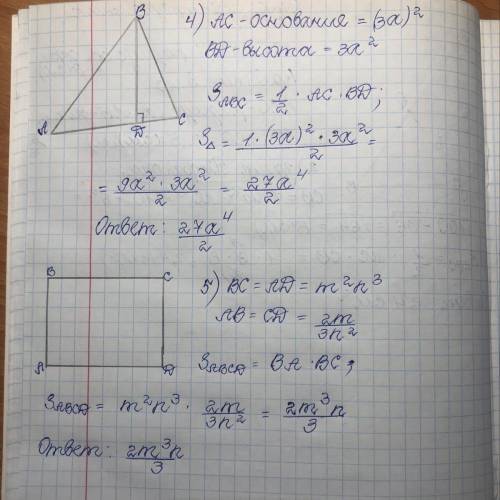 B
A
D
C
4) AC - основание = (3a)²
BD - высота = 3a²
S_ABC = 1/2 · AC · BD;
S_Δ = 1 · (3a)² · 3a² / 2 =
= 9a² · 3a² / 2 = 27a⁴ / 2
Ответ: 27a⁴ / 2
B
C
A
D
5) BC = AD = m²n³
AB = CD = 2m / 3n²
S_ABCD = BA · BC;
S_ABCD = m²n³ · 2m / 3n² = 2m³n / 3
Ответ: 2m³n / 3